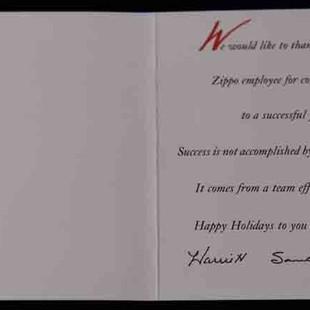 We would like to than
Zippo employee for co
to a successful
Success is not accomplished by
It comes from a team eff
Happy Holidays to you
Harriett